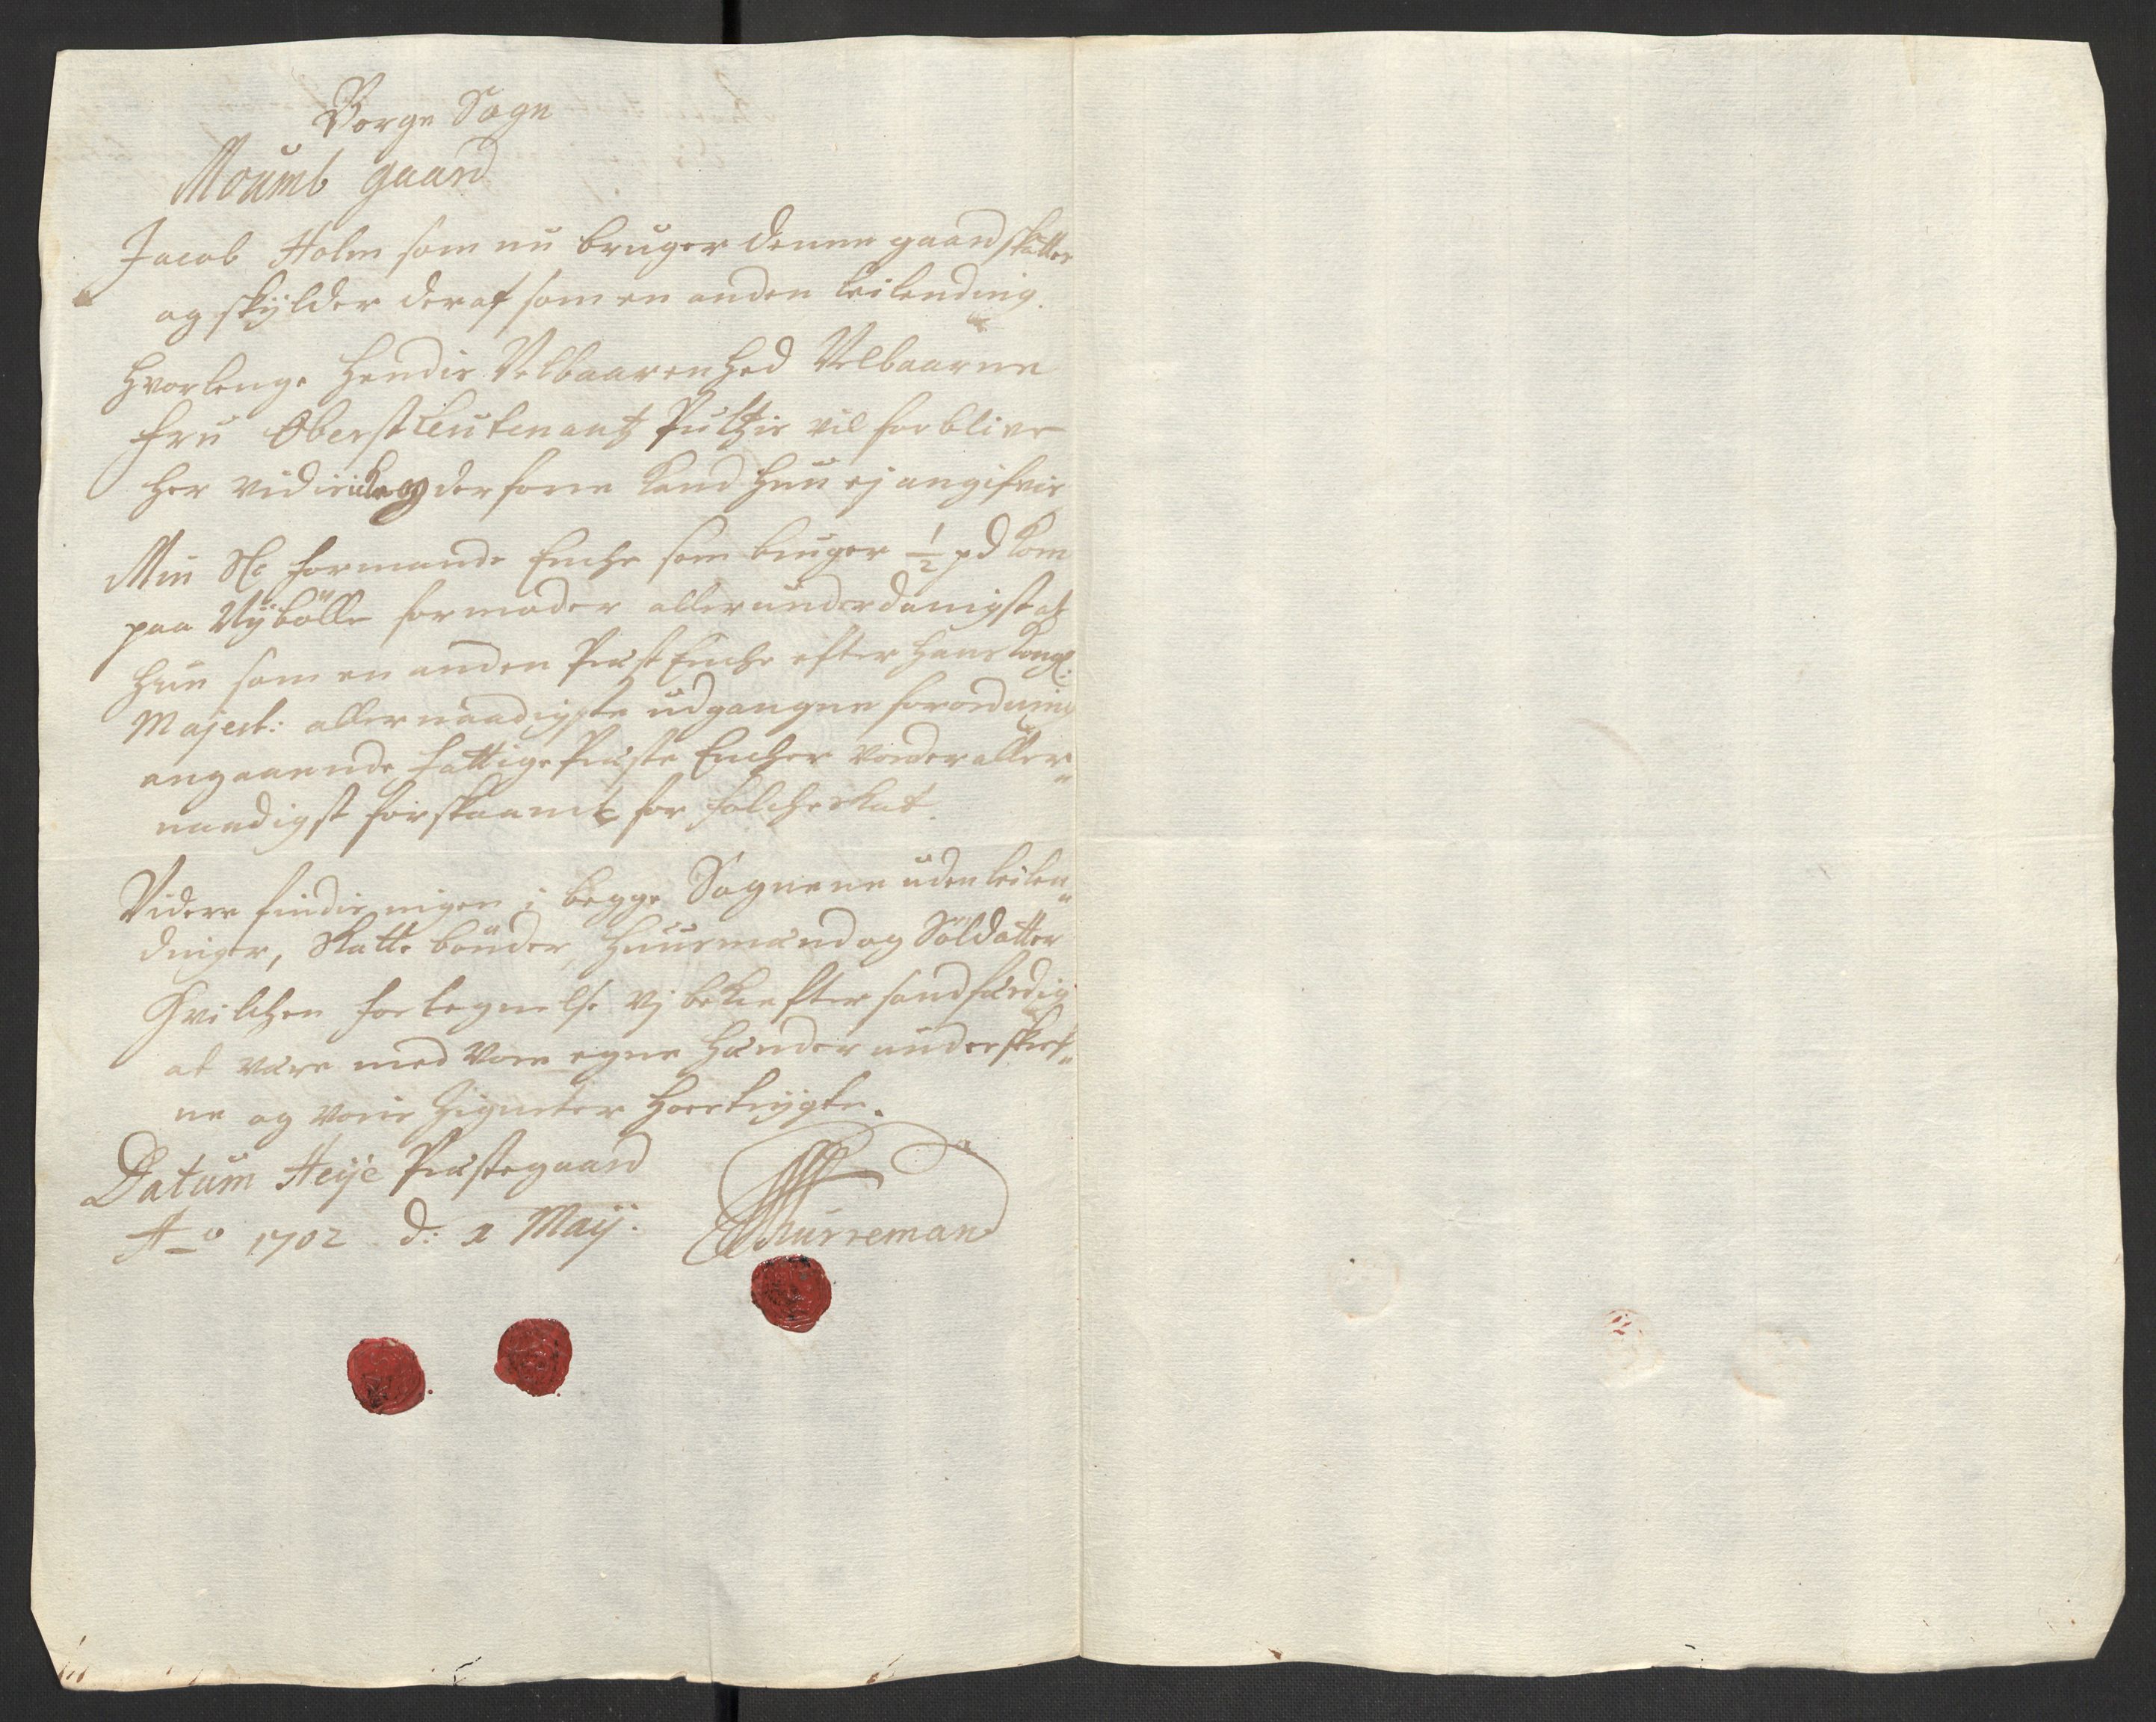 Borge Sogn
Moumb gaard
Jacob Holm som nu bruger denne gaard skatter
og skÿlder deraf som en anden leilending.
Hvorlenge Hendis Velbaarenhed Velbaarne
Fru Oberstleutenantz Pultzis vil forblive
her vidis icke og derforre kand hun ej angifvis
Min Sl: formands Enche som bruger 1/2 pd Korn
paa Nÿbölle formoder allerunderdanigst at
hun som en anden Præst Enche efter Hans Kongl:
Majest: allernaadigste udgangne forordning
angaaende fattige Præste Encher vorder aller„
naadigst forskaanet for folcheskat.
Videre findis ingen i begge Sognene uden leilen„
dinger, Skatte bönder, Huusmænd og Soldatter
Hvilchen fortegnelse vj bekrefter sandfærdig
at være med vore egne Hænder underskref„
ne og voris Zigneter hoestrÿgte.
Datum Heÿe Præstegaard
Ao 1702 d: 1 Maÿ.
Schurreman